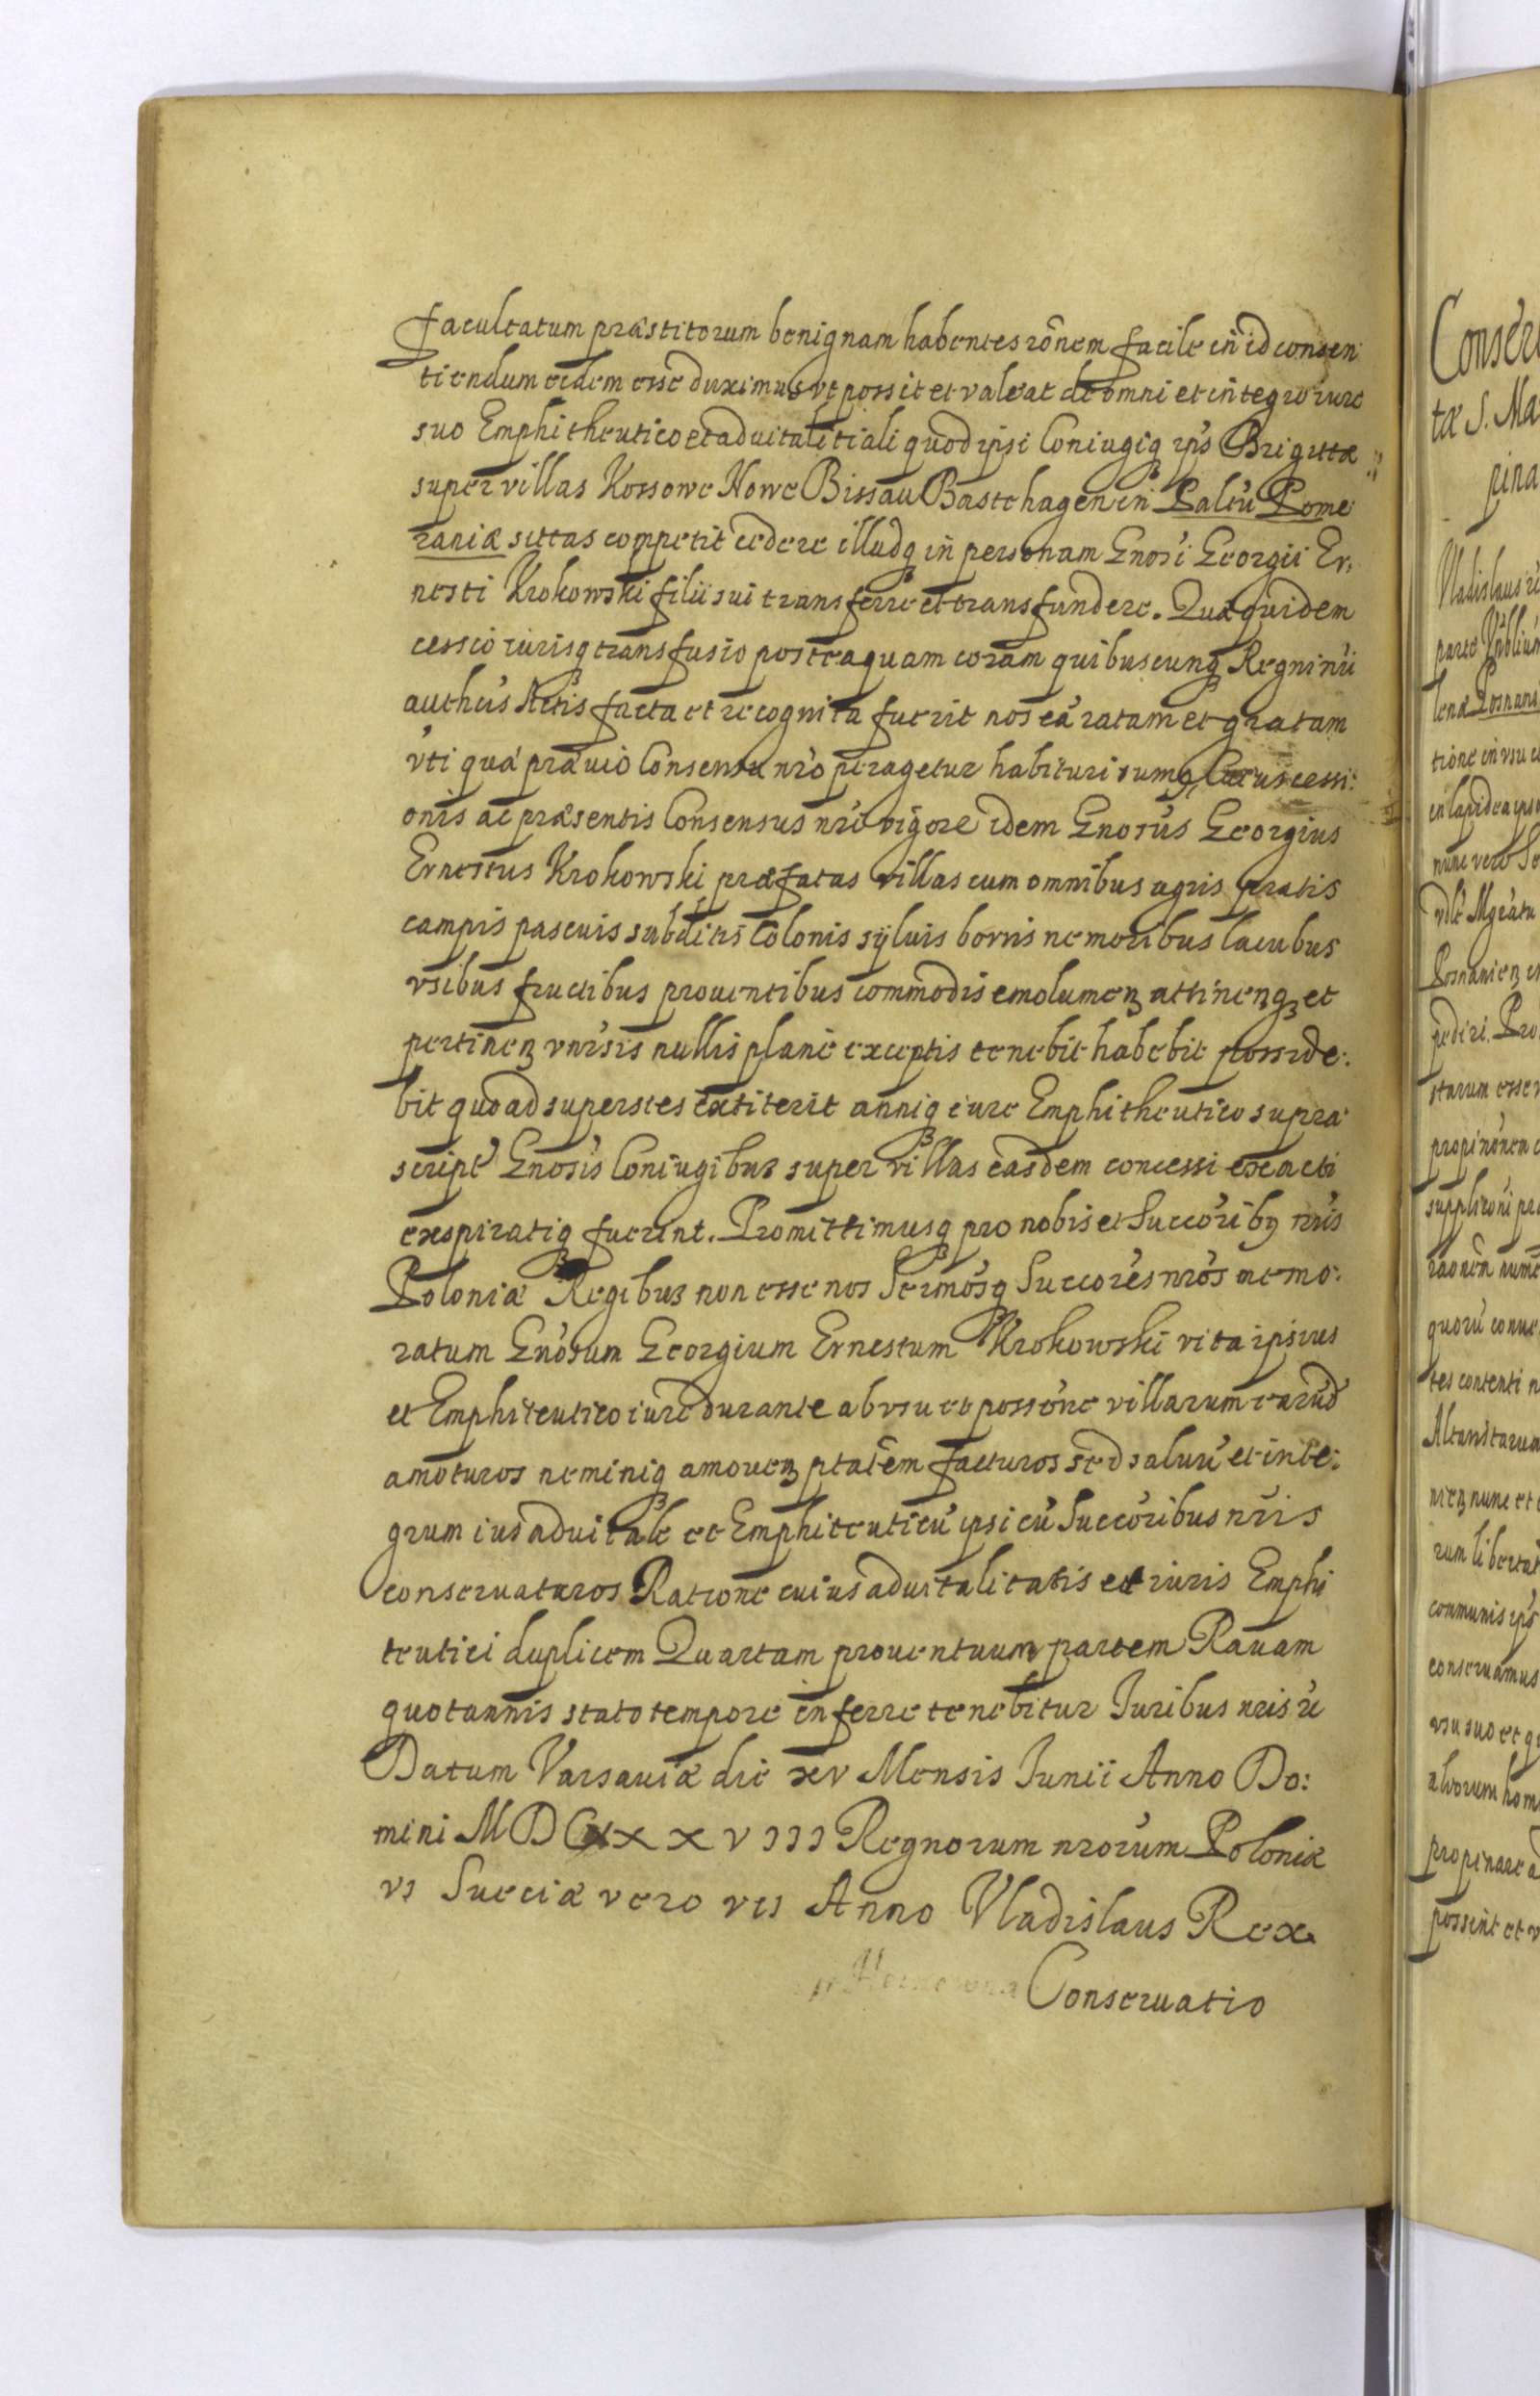 facultatum præstitorum benignam habentes rõnem facile in id consen
tiendum eidem esse duximus vt possit et valeat de omni et integro iure
suo Emphitheutico et aduitalitiali quod ipsi Coniugiq ips Brigittæ
super villas Kossowe Nowe Bissau Bastehagen in Paltu Pome
raniæ sittas competit cedere illudq in personam Gnosi Georgii Er,
nesti Krokowski filii sui transferre et transfundere. Quæ quidem
cessio iurisq transfusio posteaquam coram quibuscunq Regni nri
autheis Actis facta et recognita fuerit nos ea ratam et gratam
vti qua præuio Consensu nro peragetur habituri sumq, cessi:
onis ac præsentis Consensus nri vigore idem Gnosus Georgius
Ernestus Krokowski præfatas villas cum omnibus agris pratis
campis pascuis subditis Colonis syluis borris nemoribus lacubus
vsibus fructibus prouentibus commodis emolumenꝫ attinenꝫq et
pertinenꝫ vnirsis nullis plane exceptis tenebit habebit posside:
bit quoad superstes extiterit anniq iure Emphitheutico supra
script Gnosis Coniugibus super villas easdem concessi exacti
exspiratiq fuerint. Promittimusq pro nobis et Succoribq nris
Poloniæ Regibus non esse nos Sermosq Succores nros memo:
ratum Gnosum Georgium Ernestum Krokowski vita ipsius
et Emphiteutico iure durante ab vsu et possone villarum earud
amoturos neminiq amouenꝫ ptatem facturos sed saluu et inte:
grum ius aduitale et Emphiteuticu ipsi cu Succoribus nris
conseruaturos Ratione cuius aduitalitatis et iuris Emphi
teutici duplicem Quartam prouentuum partem Rauam
quotannis stato tempore inferre tenebitur Iuribus nris
Datum Varsauiæ die xv Mensis Iunii Anno Do:
mini MDCXXXVIII Regnorum nrorum Poloniæ
vi Sueciæ vero vii Anno Vladislaus Rex
Conseruatio
Conser
tæ S. Ma
pina
Vladislaus
parte
lenæ Posnans
tione in vsu
en lapidea ipso
nunc vero
Posnanienꝫ
pediri. Pro
starum esse
propinonem
supplironi
raonem
quoru conue
tes contenti n
Altaristarum
nienꝫ nunc et
rum libertat
communis ips
conseruamus
vsu suo et q
aliorum hom
propinare
possint et v